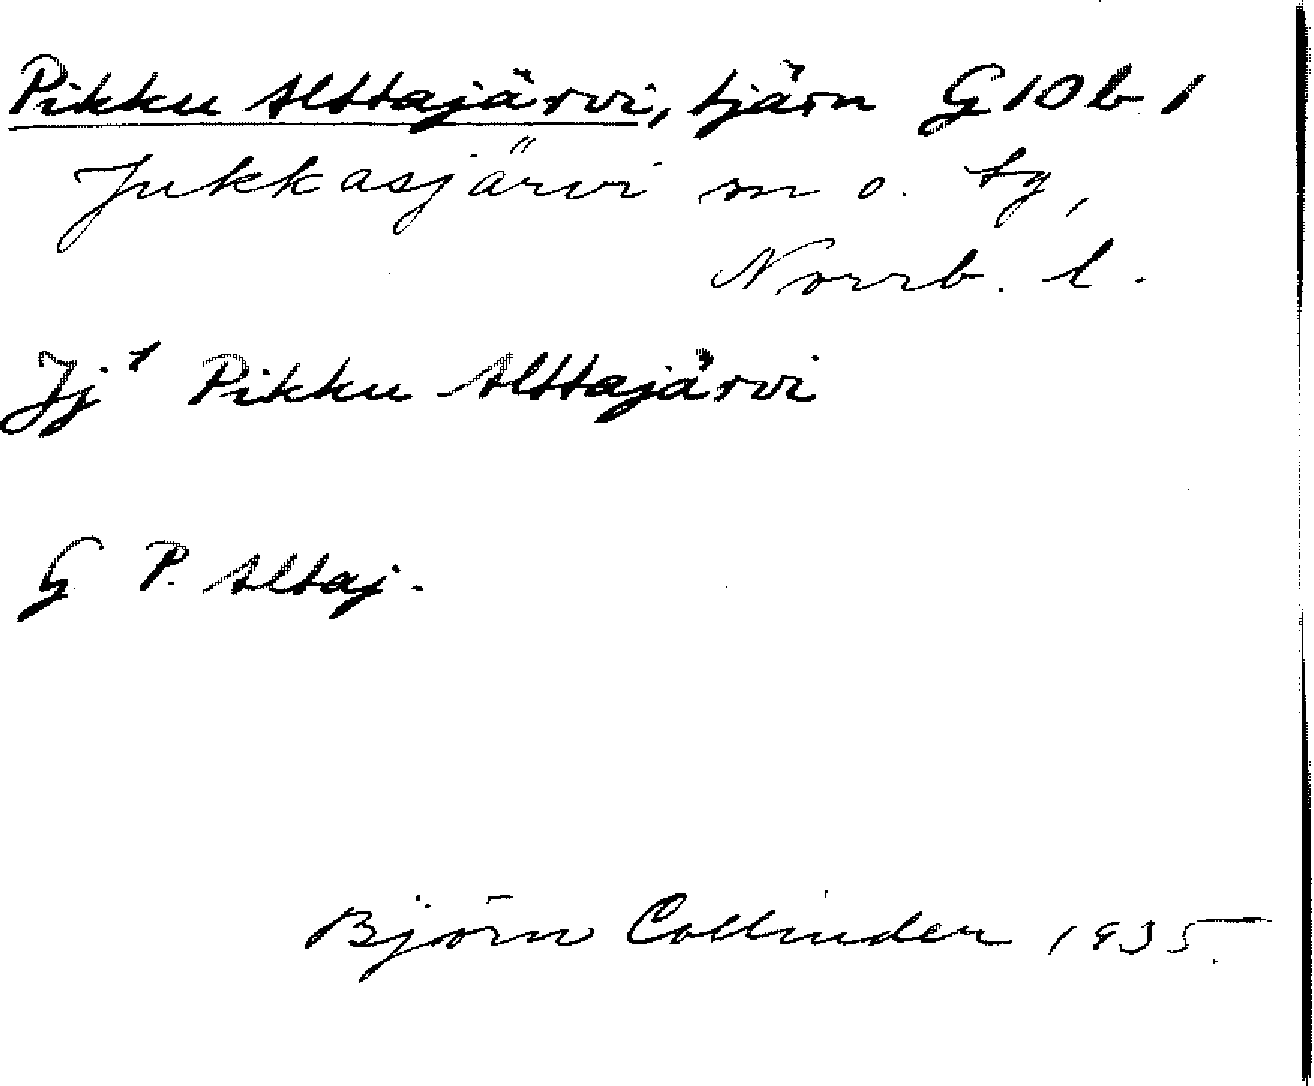 Pikku Alttajärvi, tjärn G 10 b 1
Jukkasjärvi sn o. tg,
Norrb. l.
Jj¹ Pikku Alttajärvi
G P. Altaj.
Björn Collinder 1935.